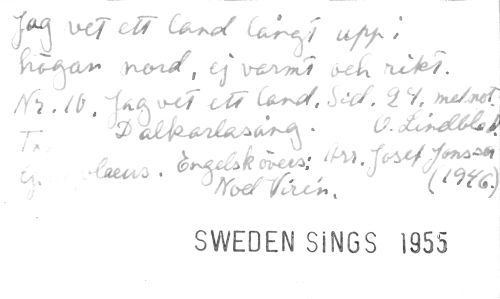 Jag vet ett land långt upp i
högan nord, ej varmt och rikt.
Nr. 10. Jag vet ett land. Sid. 24, mel. not.
Dalkarlasång. O. Lindblad.
Engelsk övers: Arr. Josef Jonsson
Noel Virén. (1946.)
SWEDEN SINGS 1955